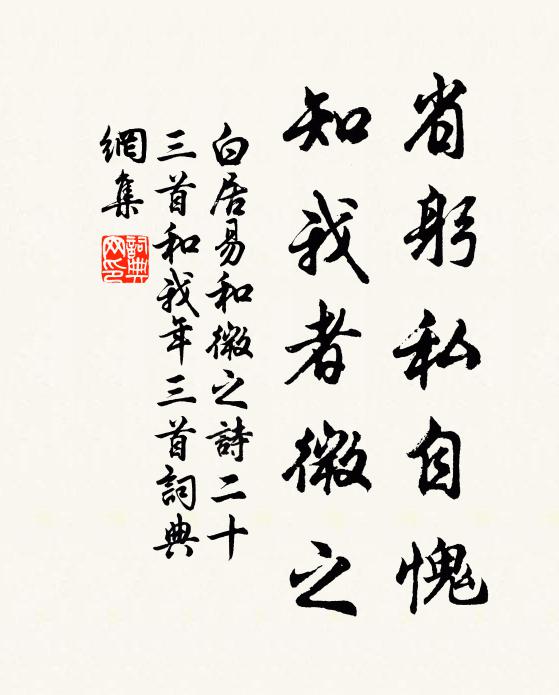 省躬私自愧
知我者微之
白居易和微之詩二十
三首和我年三首詞典
網集
詞典
网印